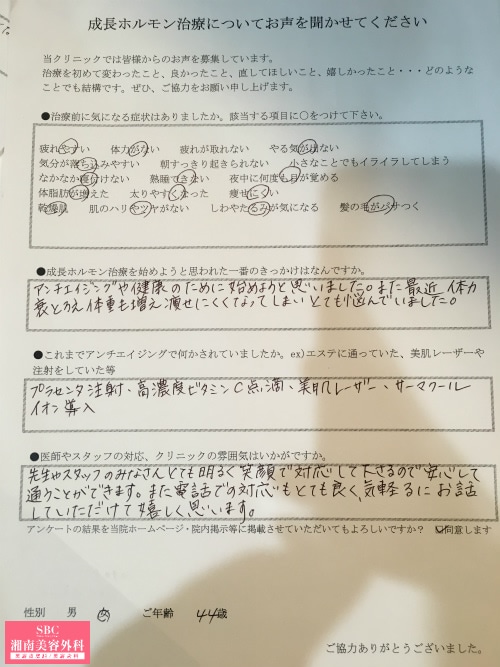 成長ホルモン治療についてお声を聞かせてください
当クリニックでは皆様からのお声を募集しています。
治療を初めて変わったこと、良かったこと、直してほしいこと、嬉しかったこと・・・どのような
ことでも結構です。ぜひ、ご協力をお願い申し上げます。
●治療前に気になる症状はありましたか。該当する項目に○をつけて下さい。
疲れやすい 体力がない 疲れが取れない やる気が出ない
気分が落ち込みやすい 朝すっきり起きられない 小さなことでもイライラしてしまう
なかなか寝付けない 熟睡できない 夜中に何度も目が覚める
体脂肪が増えた 太りやすくなった 痩せにくい
乾燥肌 肌のハリやツヤがない しわやたるみが気になる 髪の毛がパサつく
●成長ホルモン治療を始めようと思われた一番のきっかけはなんですか。
アンチエイジングや健康のために始めようと思いました。また最近 体力
衰え 体重も増え痩せにくくなってしまいとても悩んでいました。
●これまでアンチエイジングで何かされていましたか。ex)エステに通っていた、美肌レーザーや
注射をしていた等
プラセンタ注射、高濃度ビタミンC点滴、美肌レーザー、サーマクール
イオン導入
●医師やスタッフの対応、クリニックの雰囲気はいかがですか。
先生やスタッフのみなさんとても明るく笑顔で対応して下さるので安心して
通うことができます。また電話での対応もとても良く、気軽るにお話
していただけて嬉しく思います。
アンケートの結果を当院ホームページ・院内掲示等に掲載させていただいてもよろしいですか? ☑同意します
性別 男 女 ご年齢 44歳
SBC
湘南美容外科
ご協力ありがとうございました。